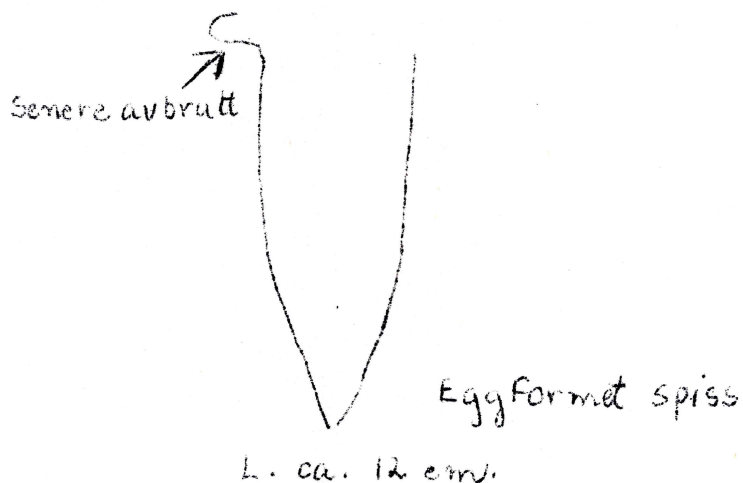 Senere avbrutt
Eggformet spiss
L. ca. 12 cm.